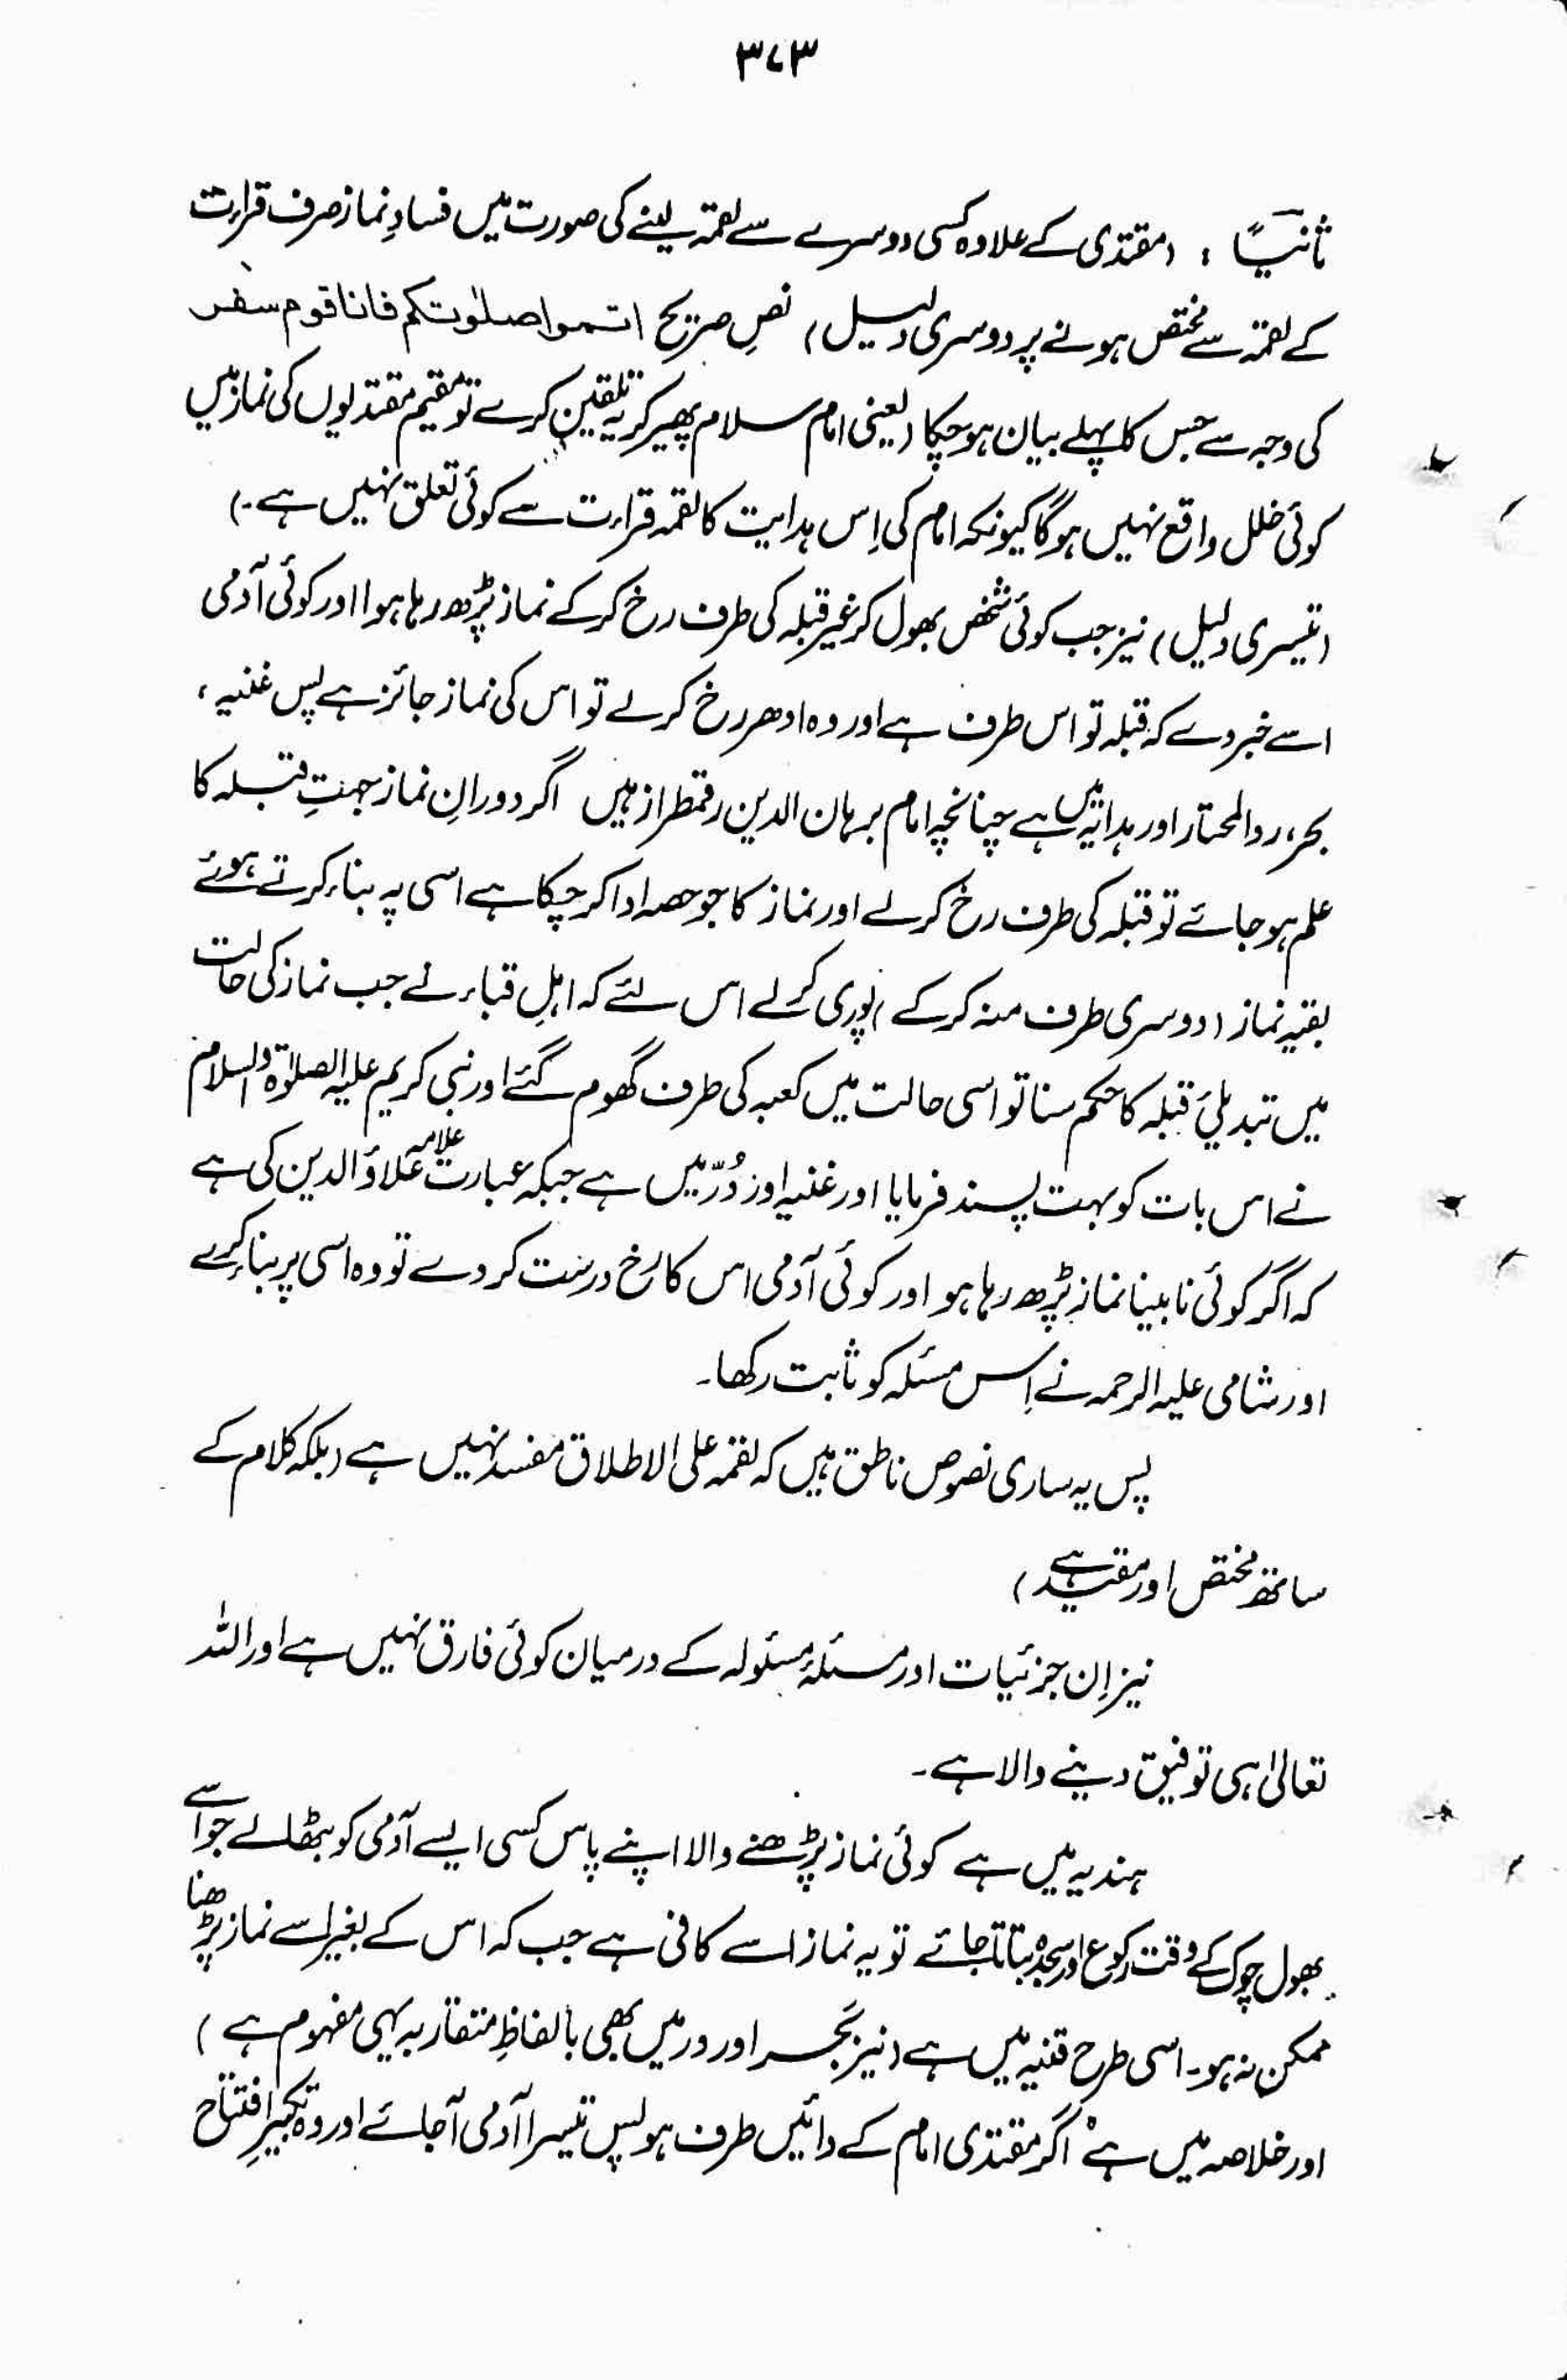 ۳۷۳
ثانیاً : (مقتدی کے علاوہ کسی دوسرے سے لقمہ لینے کی صورت میں فسادِ نماز صرف قراءت
کے لقمہ سے مختص ہونے پر دوسری دلیل) نصِ صریح اتموا صلوٰتکم فانا قوم سفر
کی وجہ سے جس کا پہلے بیان ہو چکا (یعنی امام سلام پھیر کر یہ تلقین کرے تو مقیم مقتدیوں کی نماز میں
کوئی خلل واقع نہیں ہوگا کیونکہ امام کی اِس ہدایت کا لقمہ قراءت سے کوئی تعلق نہیں ہے۔)
(تیسری دلیل) نیز جب کوئی شخص بھول کر غیر قبلہ کی طرف رخ کرکے نماز پڑھ رہا ہو اور کوئی آدمی
اسے خبر دے کہ قبلہ تو اس طرف ہے اور وہ ادھر رخ کرلے تو اس کی نماز جائز ہے پس غنیہ،
بحر، ردالمحتار اور ہدایہ میں ہے چنانچہ امام برہان الدین رقمطراز ہیں اگر دورانِ نماز جہتِ قبلہ کا
علم ہو جائے تو قبلہ کی طرف رخ کرلے اور نماز کا جو حصہ ادا کر چکا ہے اسی پہ بناء کرتے ہوئے
بقیہ نماز (دوسری طرف منہ کرکے) پوری کرلے اس لئے کہ اہلِ قباء نے جب نماز کی حالت
میں تبدیلیٔ قبلہ کا حکم سنا تو اسی حالت میں کعبہ کی طرف گھوم گئے اور نبی کریم علیہ الصلوٰۃ والسلام
نے اس بات کو بہت پسند فرمایا اور غنیہ اور دُرّ میں ہے جبکہ عبارت علامہ علاؤ الدین کی ہے
کہ اگر کوئی نابینا نماز پڑھ رہا ہو اور کوئی آدمی اس کا رخ درست کر دے تو وہ اسی پر بناء کرے
اور شامی علیہ الرحمہ نے اِس مسئلہ کو ثابت رکھا۔
پس یہ ساری نصوص ناطق ہیں کہ لقمہ علی الاطلاق مفسد نہیں ہے (بلکہ کلام کے
ساتھ مختص اور مقید ہے)
نیز اِن جزئیات اور مسئلۂ مسئولہ کے درمیان کوئی فارق نہیں ہے اور اللہ
تعالیٰ ہی توفیق دینے والا ہے۔
ہندیہ میں ہے کوئی نماز پڑھنے والا اپنے پاس کسی ایسے آدمی کو بٹھالے جو اسے
بھول چوک کے وقت رکوع اور سجدہ بتاتا جائے تو یہ نماز اسے کافی ہے جب کہ اس کے بغیر اسے نماز پڑھنا
ممکن نہ ہو۔ اسی طرح قنیہ میں ہے (نیز بحر اور در میں بھی بالفاظِ متقاربہ یہی مفہوم ہے)
اور خلاصہ میں ہے" اگر مقتدی امام کے دائیں طرف ہو پس تیسرا آدمی آجائے اور وہ تکبیرِ افتتاح